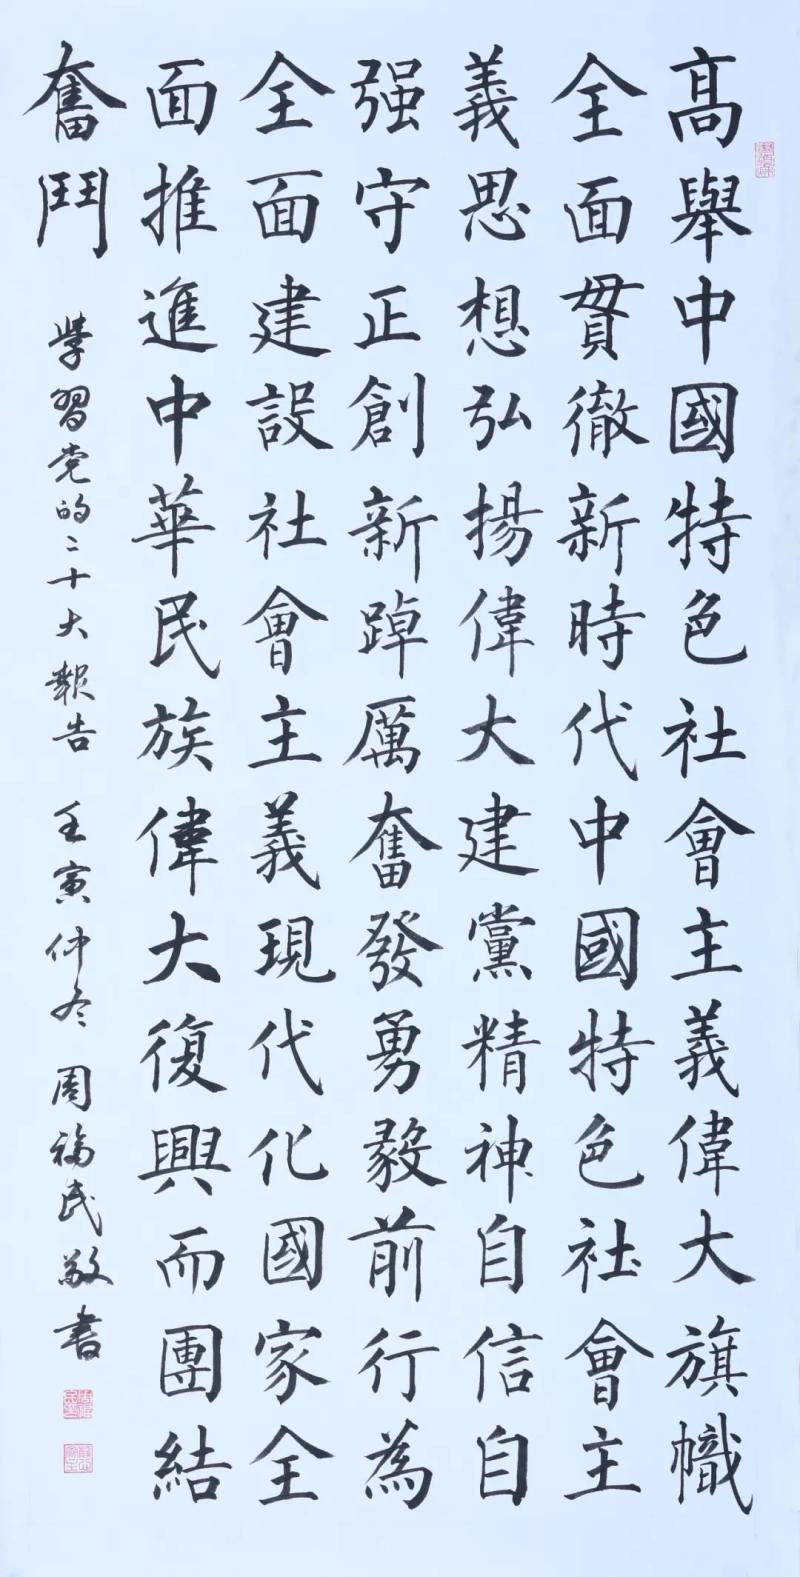 高舉中國特色社會主義偉大旗幟
全面貫徹新時代中國特色社會主
義思想弘揚偉大建黨精神自信自
强守正創新踔厲奮發勇毅前行為
全面建設社會主義現代化國家全
面推進中華民族偉大復興而團結
奮鬥
學習党的二十大報告 壬寅仲冬 周福民敬書